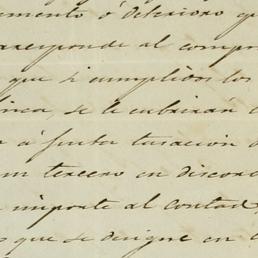 emento ó deterioro q
corresponde al compr
que si cumplidos los
inca, se le cubrirán
á justa tasación
un tercero en discor
importe al contad
que se designe en